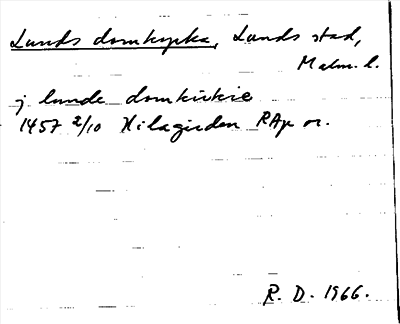 Lunds domkyrka, Lunds stad,
Malm. l.
j lunde domkirkie
1457 2/10 Hilagirden RAp or.
R. D. 1966.